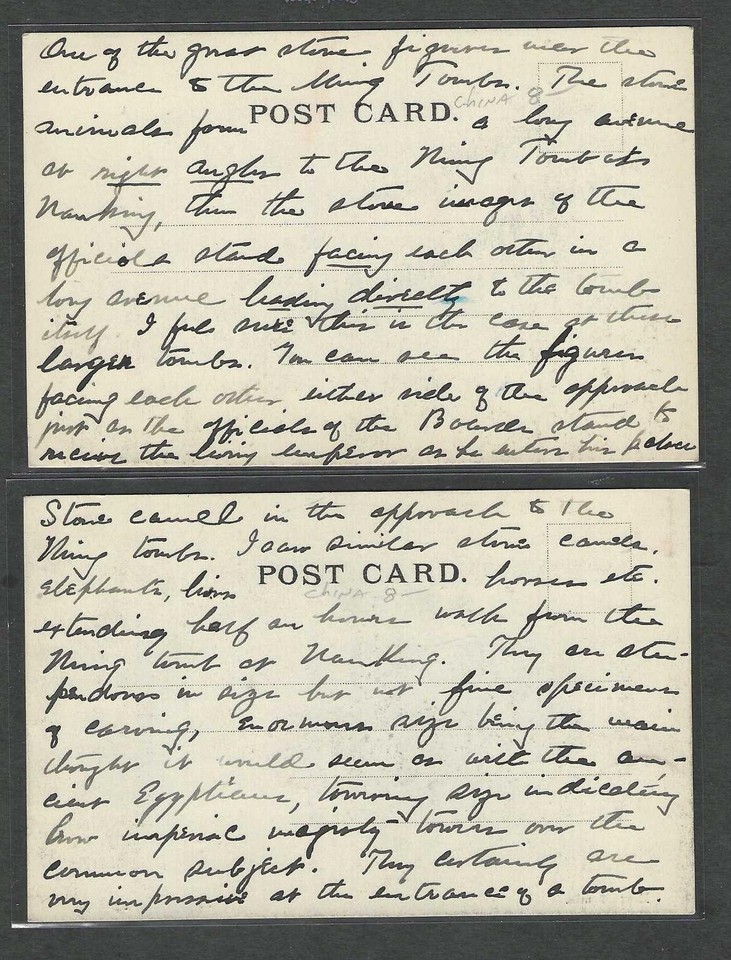 One of the great stone figures near the
entrance to the Ming Tombs. The stone
POST CARD.
CHINA 8-
animals form a long avenue
at right angles to the Ming Tomb at
Nanking, then the stone images of the
officials stand facing each other in a
long avenue leading directly to the tomb
itself. I feel sure this is the case at these
larger tombs. You can see the figures
facing each other either side of the approach
just as the officials of the Boards stand to
receive the living emperor as he enters his palace
Stone camel in the approach to the
Ming tombs. I saw similar stone camels,
POST CARD.
CHINA 8-
elephants, lions horses etc.
extending half an hours walk from the
Ming tomb at Nanking. They are stu-
pendous in size but not fine specimens
of carving, enormous size being the main
thought it would seem as with the an-
cient Egyptians, towering size indicating
how imperial majesty towers over the
common subject. They certainly are
very impressive at the entrance of a tomb.